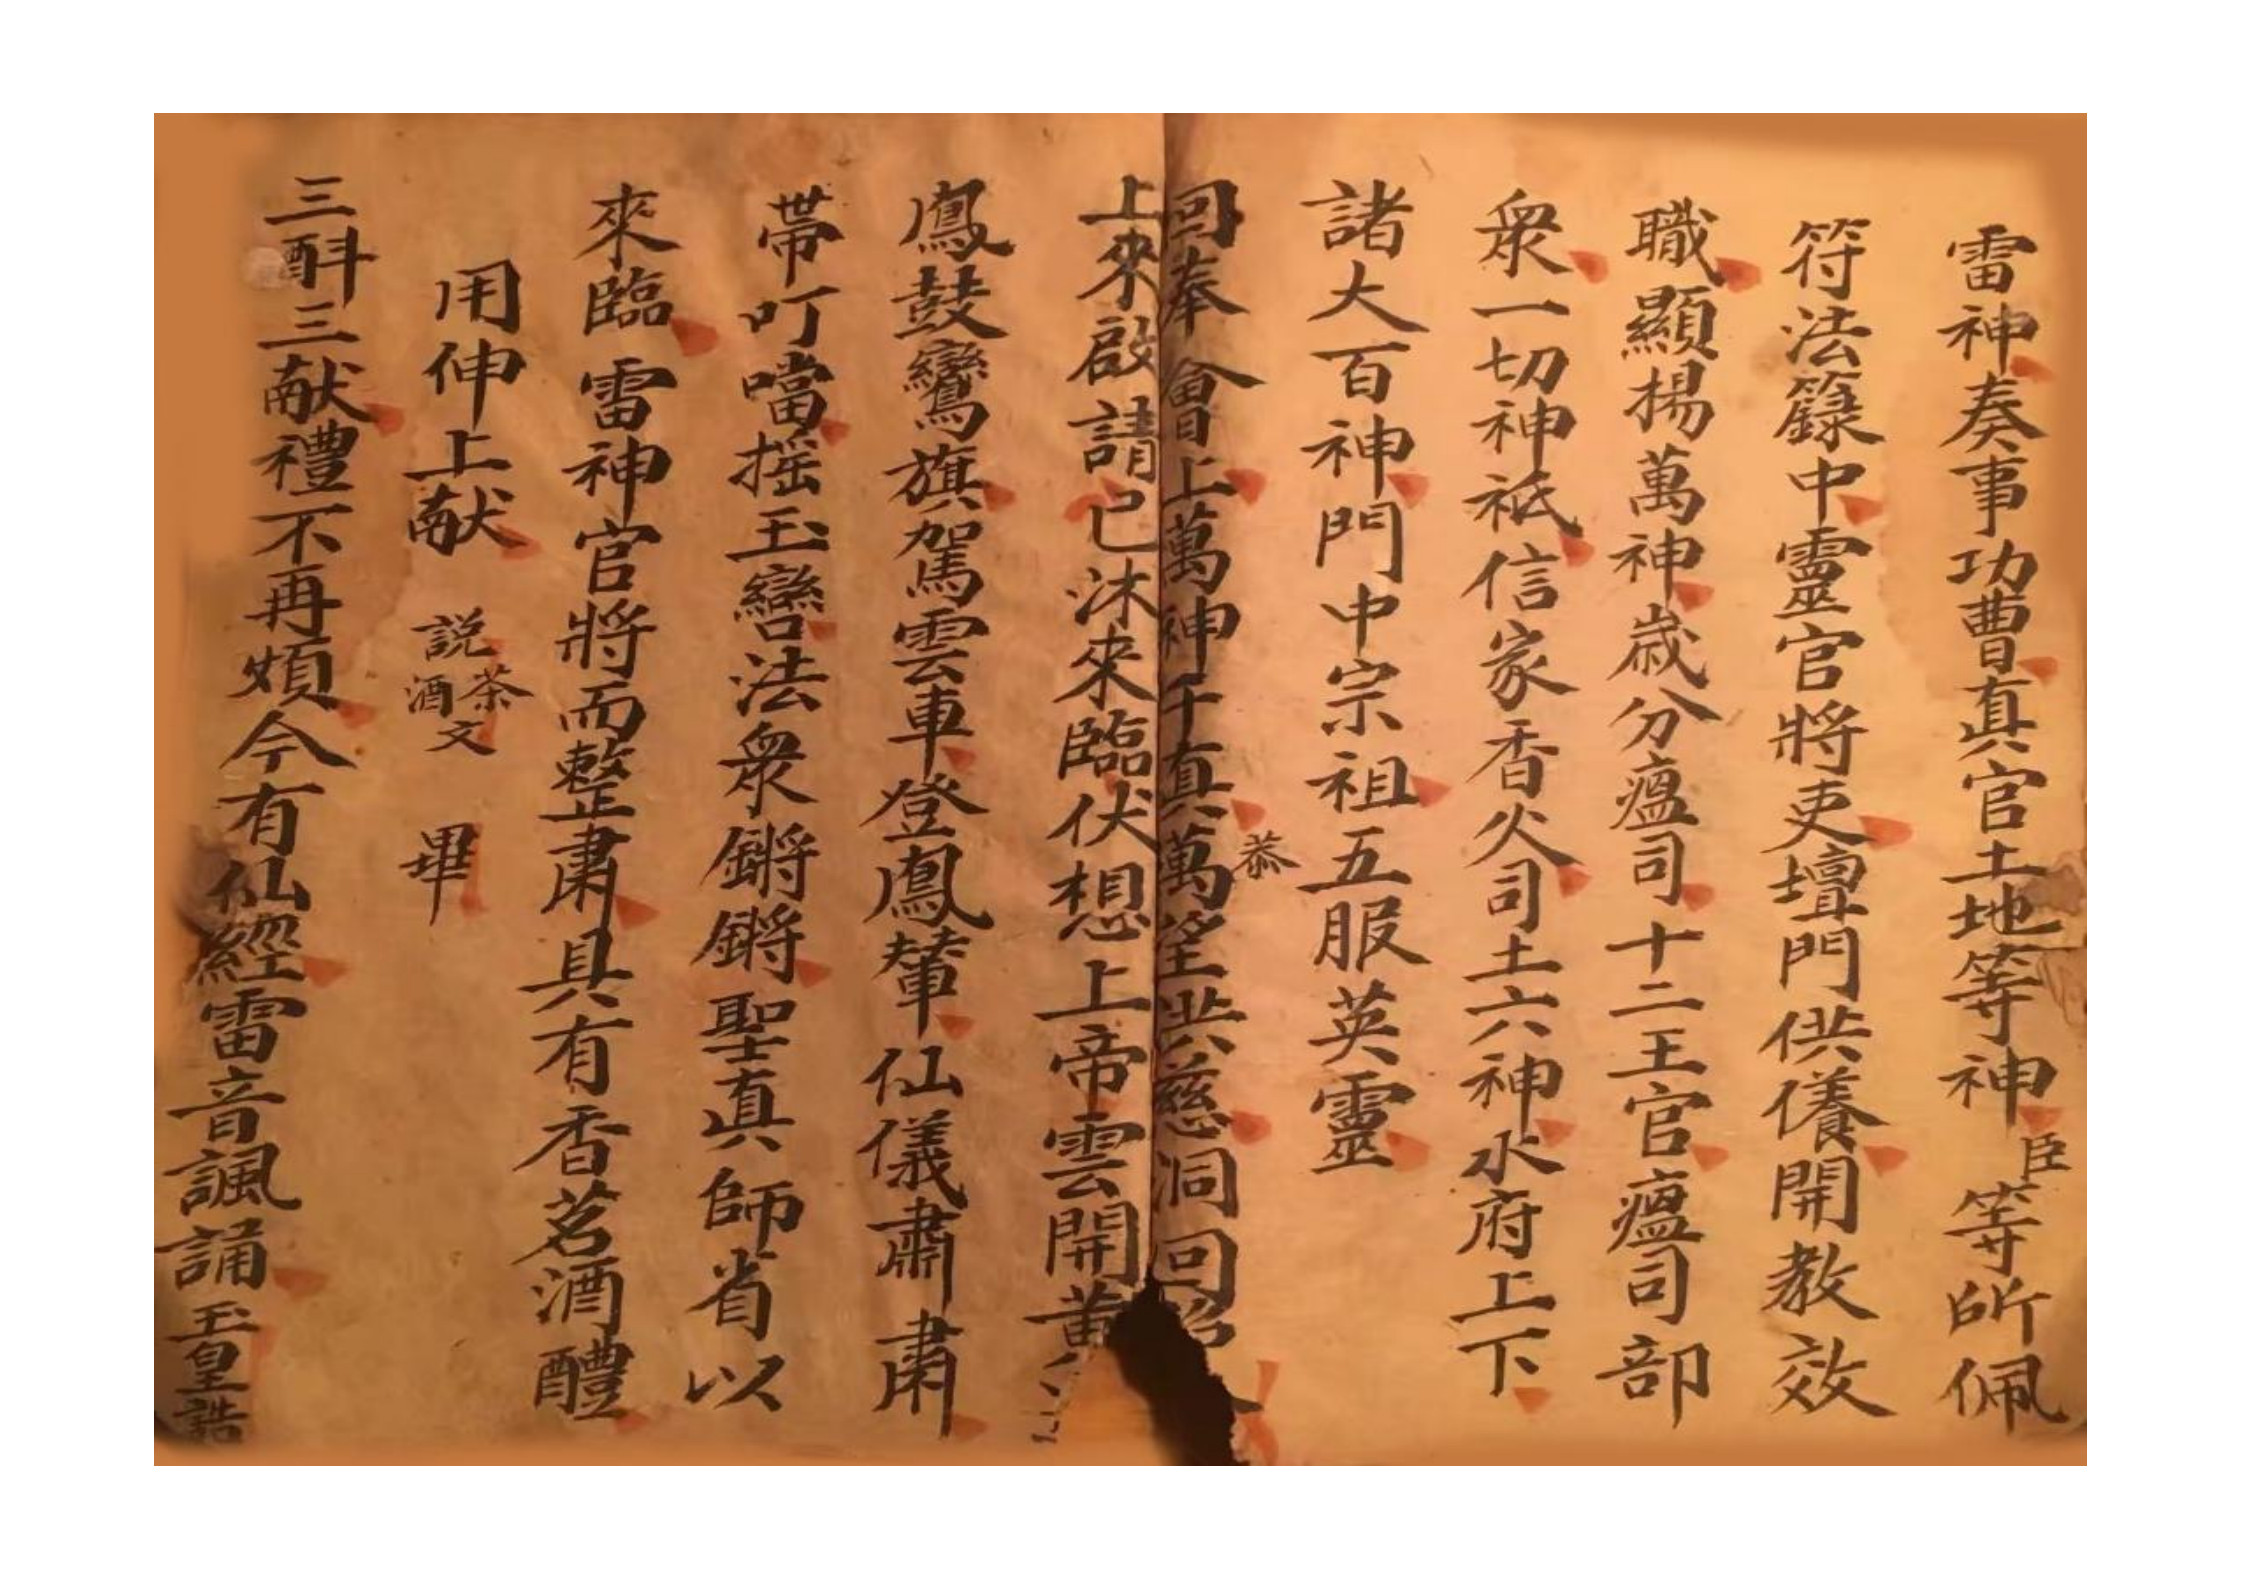 雷神奏事功曹真官土地等神臣等所佩
符法籙中靈官將吏壇門供養開教效
職顯揚萬神歲分瘟司十二王官瘟司部
眾一切神祇信家香火司土六神水府上下
諸大百神門中宗祖五服英靈
恭
回奉會上萬神千真萬聖洪慈洞回
上來啟請已沐來臨伏想上帝雲開黃
鳳鼓鸞旗駕雲車登鳳輦仙儀肅肅
帶叮噹搖玉轡法眾鏘鏘聖真師省以
來臨雷神官將而整肅具有香茗酒醴
用伸上献 説茶酒文 畢
三酙三献禮不再煩今有仙經雷音諷誦玉皇誥